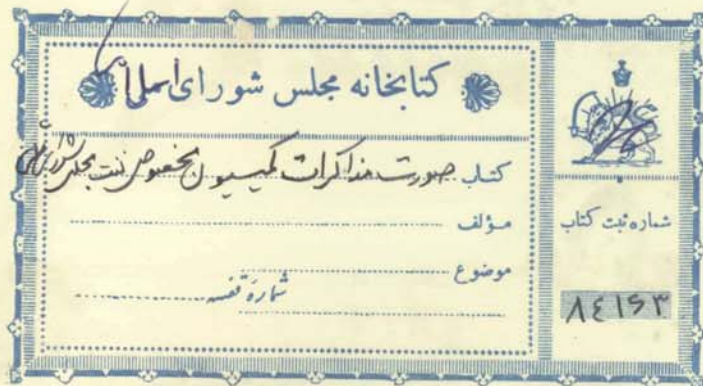 کتابخانه مجلس شورای اسلامی
کتاب صورت مذاکرات کمیسیون مخصوص نفت مجلس شورای ملی
مؤلف
موضوع
شمارهٔ قفسه
شماره ثبت کتاب
۸۴۱۵۳